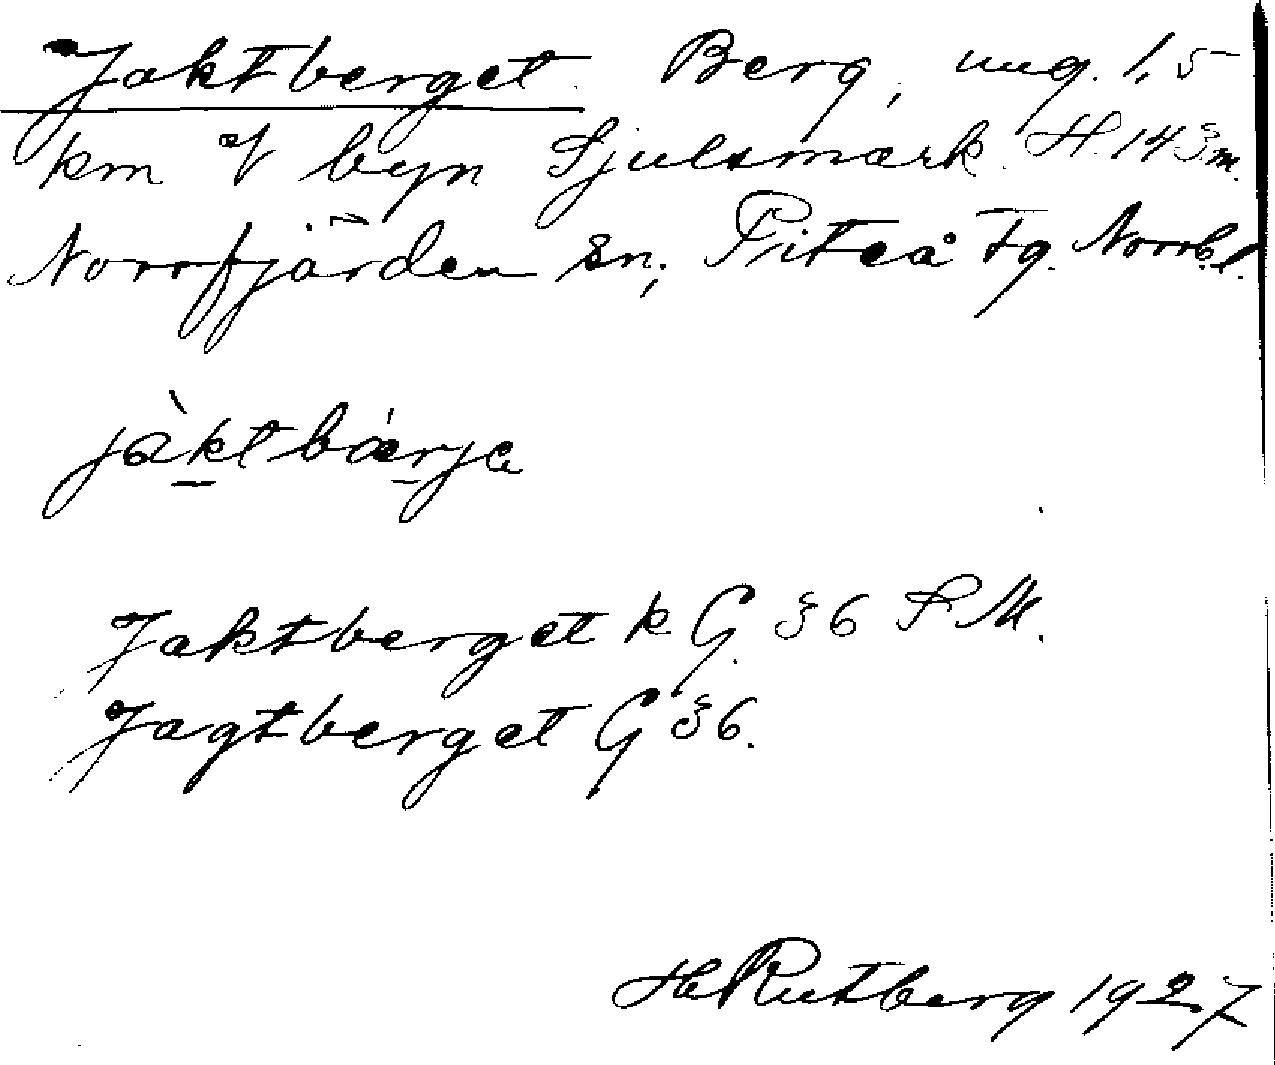 Jaktberget. Berg, ung. 1,5
km V byn Sjulsmark. H. 143 m.
Norrfjärden sn, Piteå tg. Norrb. l.
jàktbárje
Jaktberget k G. §6 S M.
Jagtberget G §6.
H Rutberg 1927